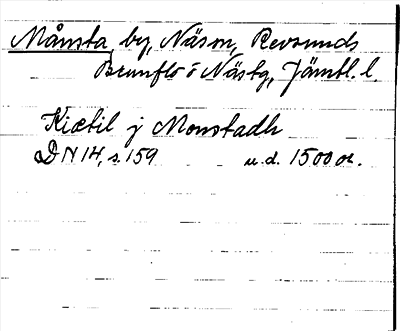 Månsta, by, Näs sn, Revsunds
Brunflo o Näs tg, Jämtl. l.
Kiætil j Monstadh
DN 14, s. 159 u.d. 1500 ot.